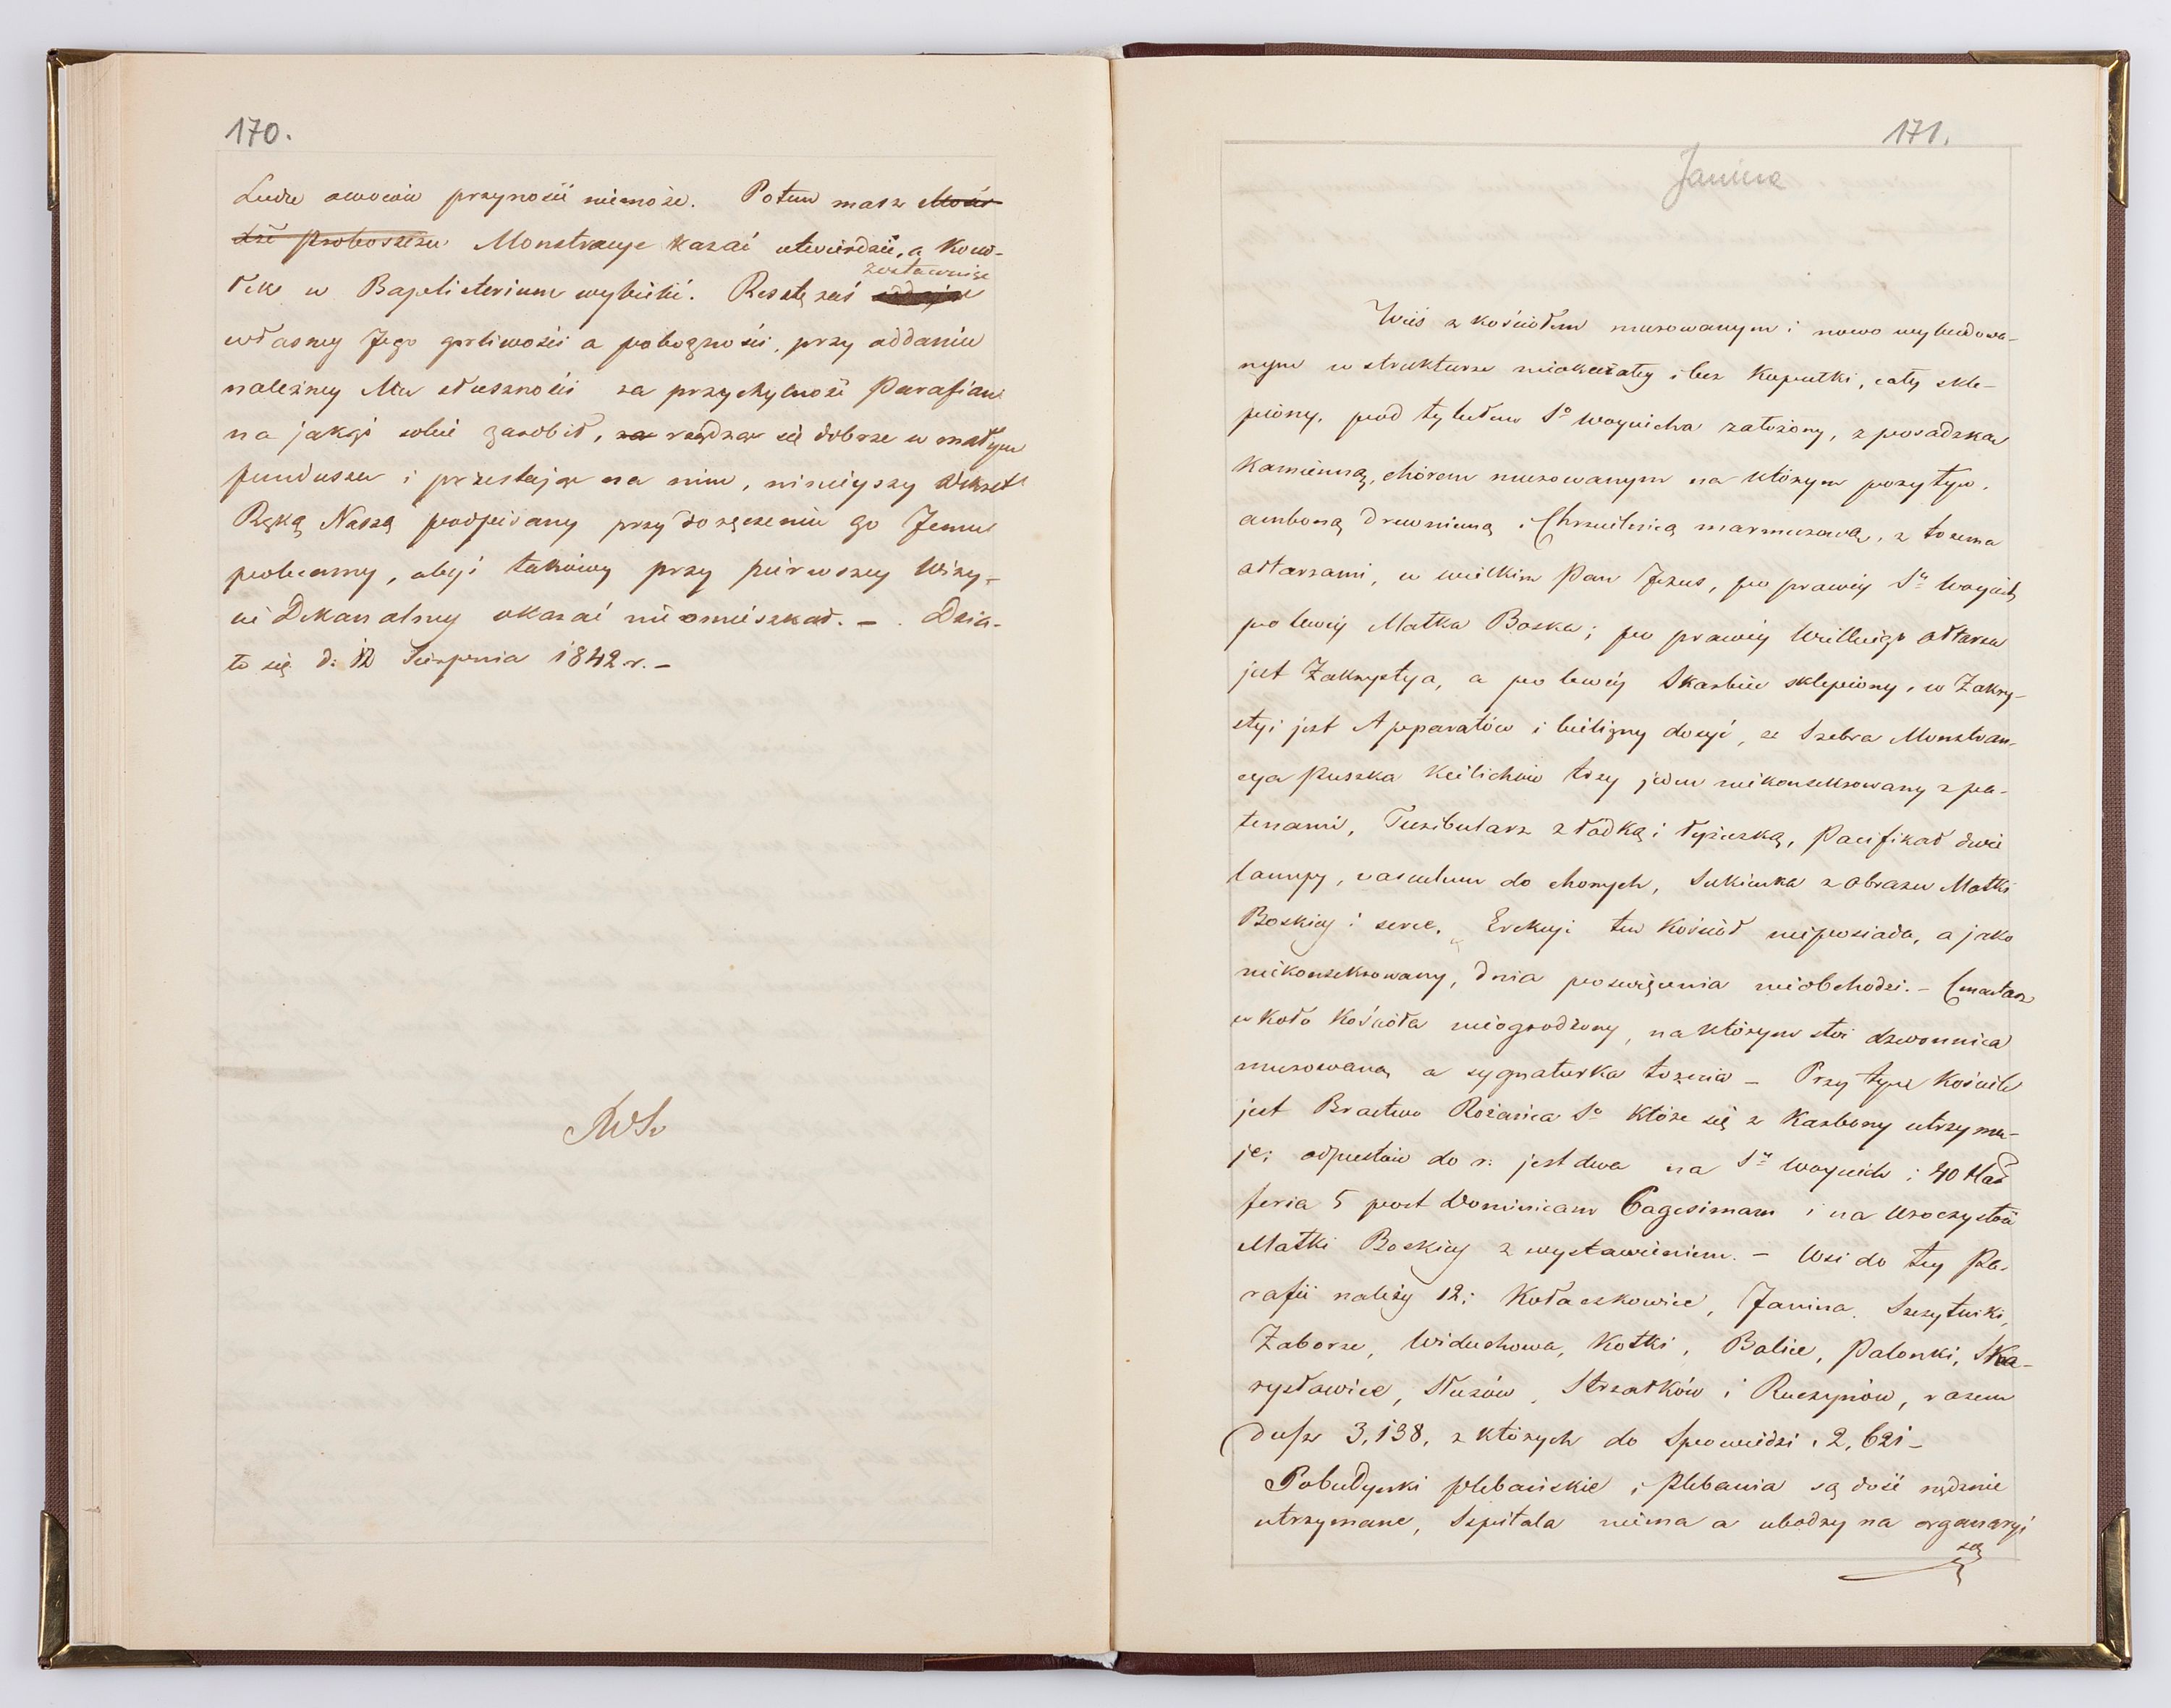 170.
Ludu owoców przynosić niemoże. Potem masz Mości
dzi Proboszczu Monstrancye kazać utwierdzić, a Kow-
zostawuję
łek w Baptisterium wybielić. Resztę zaś
własney Jego gorliwości a pobożności, przy oddaniu
należney Mu słuszności za przychylność Parafian
na jakąś sobie zarobił, za rządząc się dobrze w małym
funduszu i przestając na nim, ninieyszy Dekret
Ręką Naszą podpisany przy doręczeniu go Jemu
polecamy, abyś takowy przy pierwszey Wizy-
cie Dekanalney okazać nieomieszkał. — . Dzia-
ło się d: 12 Sierpnia 1842 r. —
171.
Janina
Wieś z kościołem murowanym i nowo wybudowa-
nym w strukturze niokazałey i bez Kopułki, cały skle-
piony, pod tytułem Sº Woyciecha założony, z posadzką
Kamienną, chórem murowanym na którym pozytyw,
amboną drewnianą i Chrzcilnicą marmurową, z trzema
ołtarzami, w wielkim Pan Jezus, po prawey Sty Woyciech
po lewey Matka Boska; po prawey Wielkiego Ołtarza
jest Zakrystya, a po lewey Skarbiec sklepiony, w Zakry-
styi jest Apparatów i bielizny dosyć, ze Srebra Monstran-
cya Puszka Kielichów trzy jeden niekonsekrowany z pa-
tenami, Turibularz z łódką i łyżeczką, Pacifikał dwie
lampy, vasculum do chorych, Sukienka z obrazu Matki
Boskiey i serce. Erekcyi ten Kościół nieposiada, a jako
niekonsekrowany, dnia poswięcenia nieobchodzi. — Cmentarz
w koło Kościoła nieogrodzony, na którym stoi dzwonnica
murowana, a sygnaturka trzecia — Przy tym Kościele
jest Bractwo Różańca Sº które się z Karbony utrzymu-
je; odpustów do r: jest dwa na Sty Woyciech i 40 God
feria 5 post Dominicam 6agesimam i na Uroczystość
Matki Boskiey z wystawieniem. — Wsi do tey Pa-
rafii należy 12: Kołaczkowice, Janina, Szczytniki,
Zaborze, Widuchowa, Kotki, Balice, Palonki, Ska-
rysławice, Służów, Strzałków i Ruczynów, razem
dusz 3,138, z których do Spowiedzi 2,621 —
Pobudynki plebańskie i Plebania są dość nędznie
utrzymane, Szpitala niema a ubodzy na organaryi
są